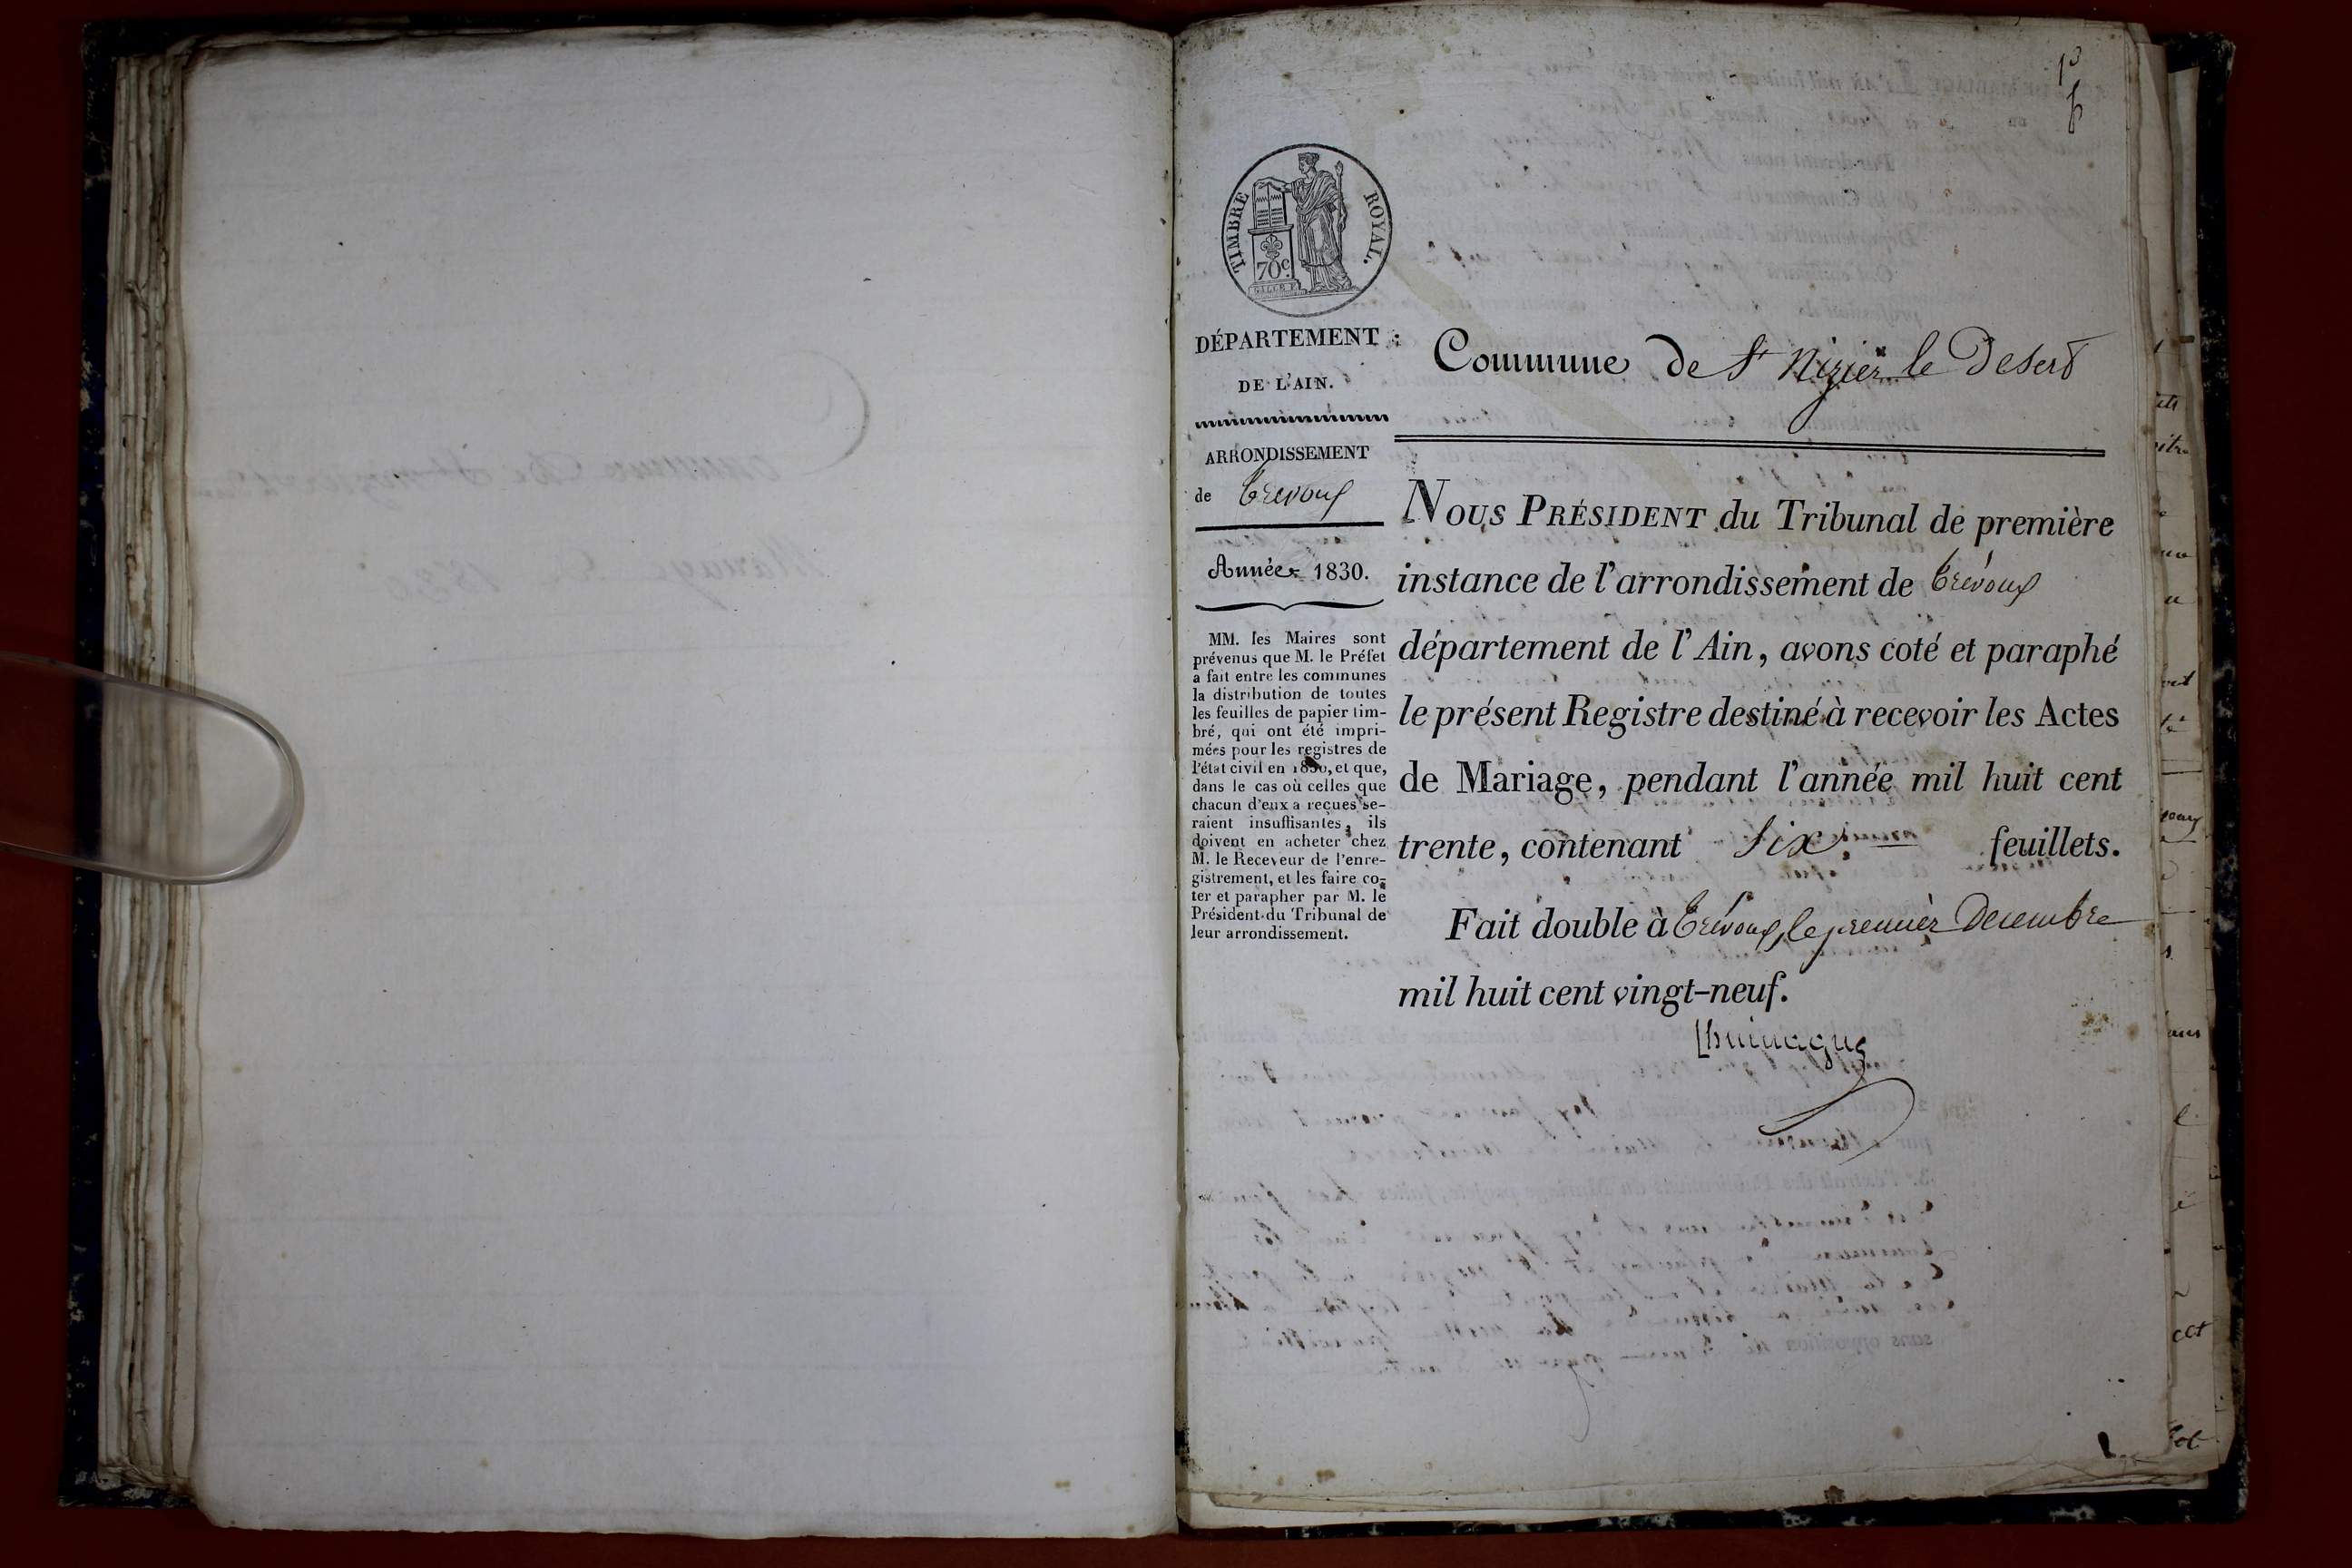 1°
TIMBRE ROYAL.
70 c.
DÉPARTEMENT
DE L'AIN.
ARRONDISSEMENT
de Trévoux
Année 1830.
MM. les Maires sont
prévenus que M. le Préfet
a fait entre les communes
la distribution de toutes
les feuilles de papier tim-
bré, qui ont été impri-
mées pour les registres de
l'état civil en 1830, et que,
dans le cas où celles que
chacun d'eux a reçues se-
raient insuffisantes, ils
doivent en acheter chez
M. le Receveur de l'enre-
gistrement, et les faire co-
ter et parapher par M. le
Président du Tribunal de
leur arrondissement.
Commune de St Nizier le Desert
NOUS PRÉSIDENT du Tribunal de première
instance de l'arrondissement de Trévoux
département de l'Ain, avons coté et paraphé
le présent Registre destiné à recevoir les Actes
de Mariage, pendant l'année mil huit cent
trente, contenant Six feuillets.
Fait double à Trévoux, le premier Decembre
mil huit cent vingt-neuf.